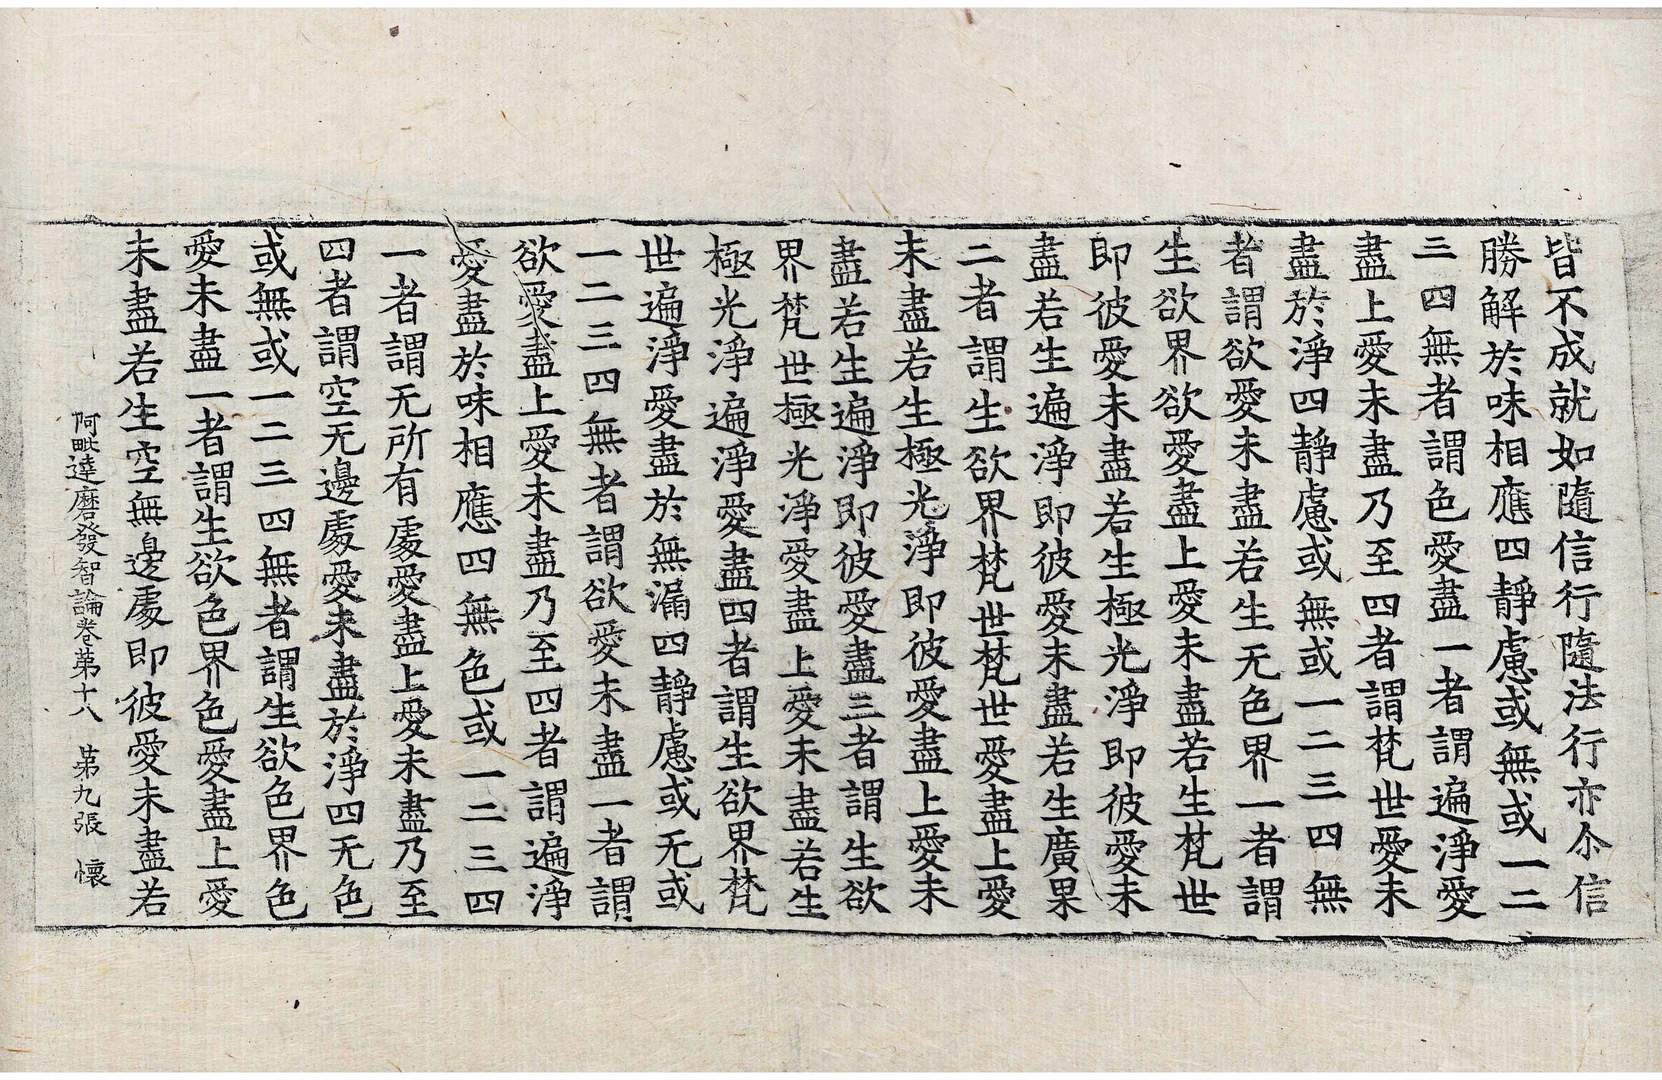 皆不成就如隨信行隨法行亦尒信
勝解於味相應四靜慮或無或一二
三四無者謂色愛盡一者謂遍淨愛
盡上愛未盡乃至四者謂梵世愛未
盡於淨四靜慮或無或一二三四無
者謂欲愛未盡若生无色界一者謂
生欲界欲愛盡上愛未盡若生梵世
即彼愛未盡若生極光淨即彼愛未
盡若生遍淨即彼愛未盡若生廣果
二者謂生欲界梵世梵世愛盡上愛
未盡若生極光淨即彼愛盡上愛未
盡若生遍淨即彼愛盡三者謂生欲
界梵世極光淨愛盡上愛未盡若生
極光淨遍淨愛盡四者謂生欲界梵
世遍淨愛盡於無漏四靜慮或无或
一二三四無者謂欲愛未盡一者謂
欲愛盡上愛未盡乃至四者謂遍淨
愛盡於味相應四無色或一二三四
一者謂无所有處愛盡上愛未盡乃至
四者謂空无邊處愛未盡於淨四无色
或無或一二三四無者謂生欲色界色
愛未盡一者謂生欲色界色愛盡上愛
未盡若生空無邊處即彼愛未盡若
阿毗達磨發智論卷第十八 第九張 懷